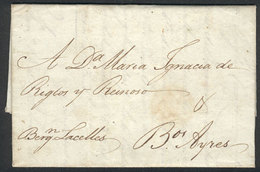 A Dª Maria Ignacia de
Riglos y Reinoso
&
Bergⁿ Lacelles Bˢ Ayres